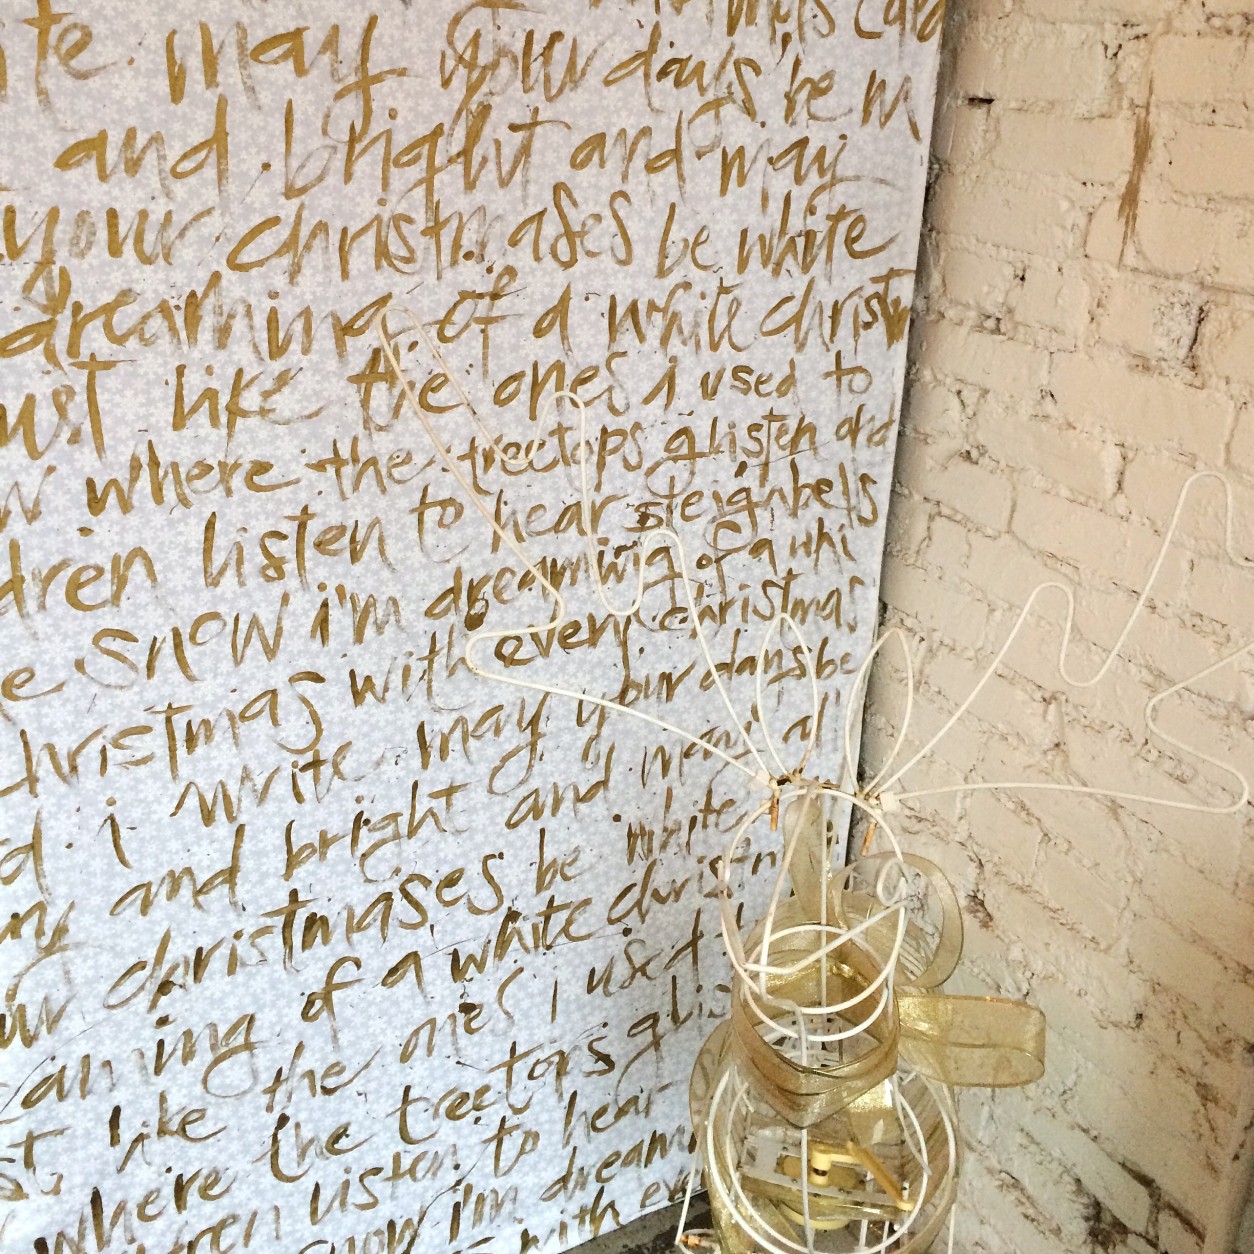 mas card
ite may your days be m
and bright and may
your christmases be white
dreaming of a white christm
ust like the ones i used to
w where the treetops glisten and
dren listen to hear sleighbells
e snow i'm dreaming of a whi
hristmas with every christmas
d i write may your days be
and bright and may all
ur christmases be white
aming of a white christm
st like the ones i used
where the treetops glis
ren listen to hear
snow i'm dreami
with eve